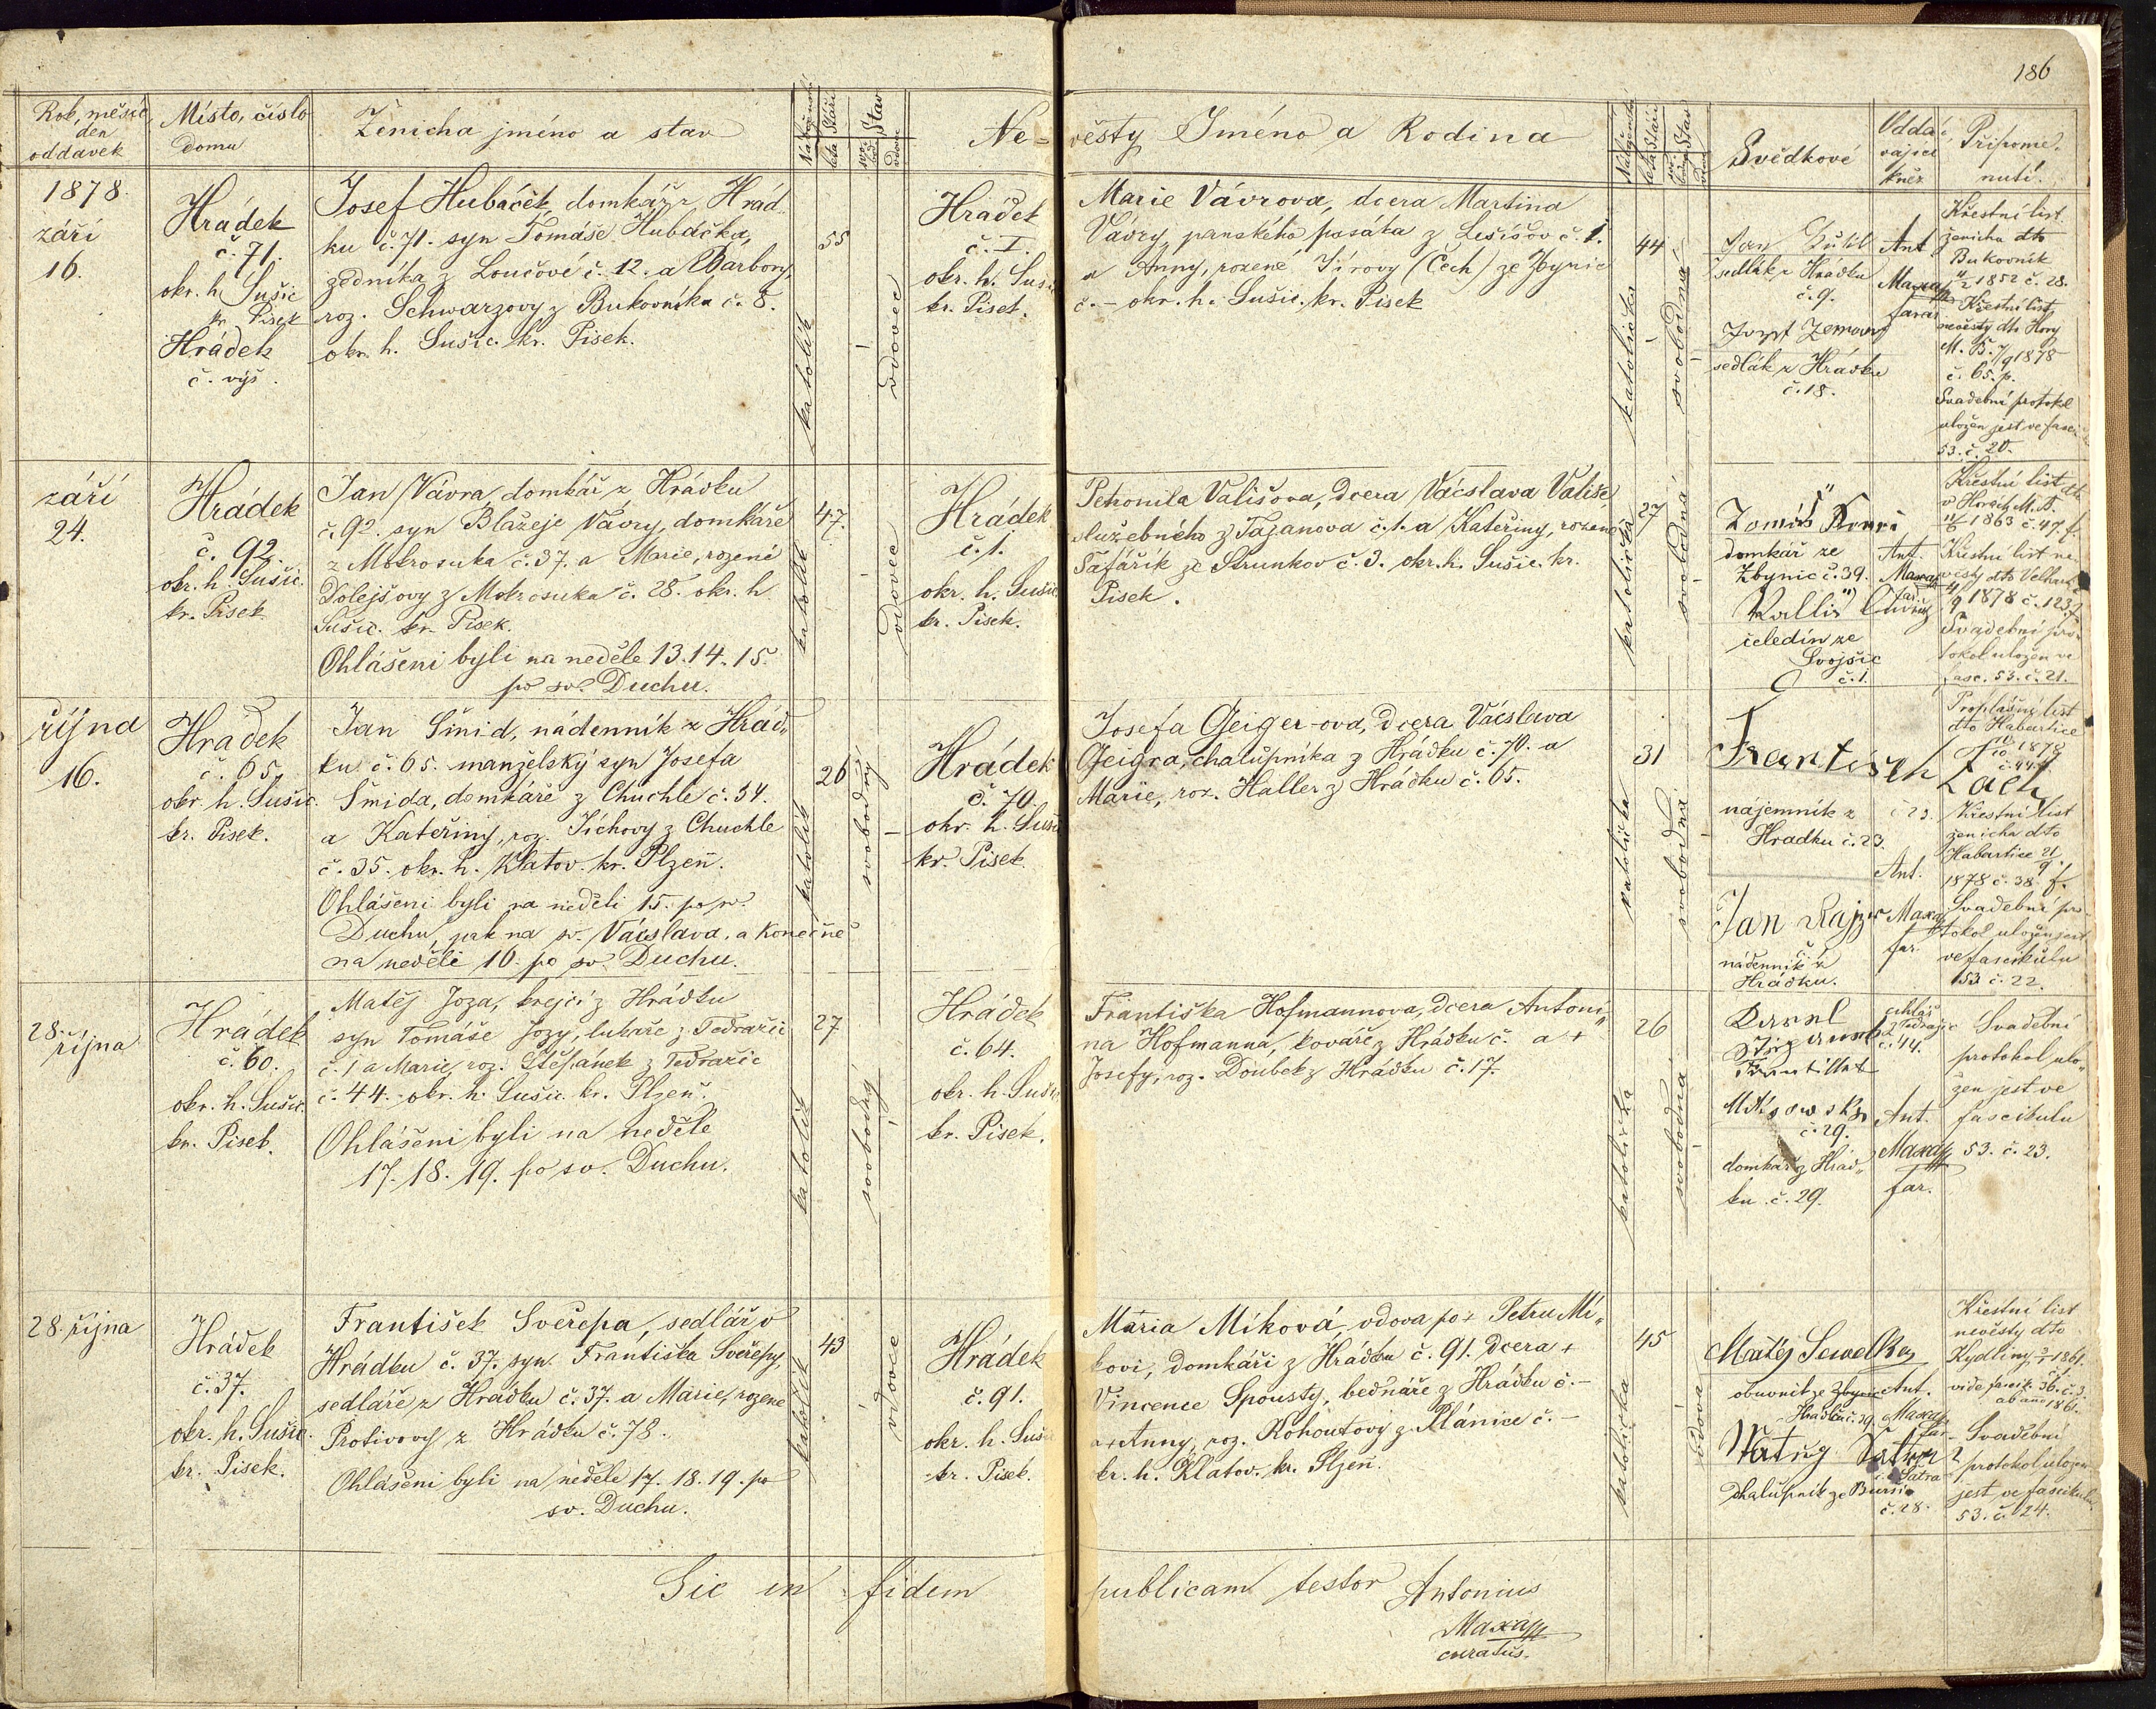 186
Rok, měsíc,
den
oddavek
Místo, číslo
domu
Ženicha jméno a stav
Náboženství
léta Stáří
Stav
vdovec
Ne-
věsty Jméno a Rodina
Náboženství
léta Stáří
Stav
Svědkové
Oddá-
vající
kněz
Připome-
nutí.
1878.
září
16.
Hrádek
č. 71.
okr. h. Sušic
kr. Písek
Hrádek
č. výš.
Josef Hubáček, domkář z Hrád-
ku č. 71. syn Tomáše Hubáčka,
zedníka z Loučové č. 12. a Barbory,
roz. Schwarzovy z Bukovníka č. 8.
okr. h. Sušic. kr. Písek.
katolík
55
vdovec
Hrádek
č. I.
okr. h. Sušic
kr. Písek.
Marie Vávrova, dcera Martina
Vávry, panského pasáka z Lešišov č. 1.
a Anny, rozené Jírovy (Čech) ze Zbynic
č. – okr. h. Sušic. kr. Písek
katolička
44
svobodná
Jan
sedlák z Hrádku
č. 9.
Josef Zeman
sedlák z Hrádku
č. 18.
Ant.
Maxa
farář
Křestní list
ženicha dto
Bukovník
1852 č. 28.
Křestní list
nevěsty dto Hory
M. B. 7/9 1878
č. 65. p.
Svadební protokol
uložen jest ve fasci
53. č. 20.
září
24.
Hrádek
č. 92.
okr. h. Sušic.
kr. Písek
Jan Vávra, domkář z Hrádku
č. 92. syn Blažeje Vávry, domkáře
z Mokrosuka č. 37. a Marie, rozené
Dolejšovy z Mokrosuka č. 28. okr. h.
Sušic. kr. Písek.
Ohlášeni byli na neděle 13. 14. 15.
po sv. Duchu.
katolík
47.
vdovec
Hrádek
č. 1.
okr. h. Sušic
kr. Písek.
Petronila Vališova, dcera Václava Vališe,
služebného z Tajanova č. 1. a Kateřiny, rozené
Šafařík ze Strunkov č. 3. okr. h. Sušic. kr.
Písek.
katolička
27
svobodná
Tomáš
domkář ze
Zbynic č. 39.
čeledín ze
Svojšic
č. 1.
Ant.
Maxa
far.
Křestní list dto
v Horách M. B.
1863 č. 47. f.
Křestní list ne-
věsty dto
1878 č. 123.
Svadební pro-
tokol uložen ve
fasc. 53. č. 21.
října
16.
Hrádek
č. 65.
okr. h. Sušic.
kr. Písek.
Jan Šmid, nádenník z Hrád-
ku č. 65. manželský syn Josefa
Šmida, domkáře z Chuchle č. 34.
a Kateřiny, roz. Tíchovy z Chuchle
č. 35. okr. h. Klatov. kr. Plzeň.
Ohlášeni byli na neděli 15. po sv.
Duchu, pak na sv. Václava, a konečně
na neděli 16. po sv. Duchu.
katolík
26
svobodný
Hrádek
č. 70.
okr. h. Sušic
kr. Písek.
Josefa Geiger-ova, dcera Václava
Geigra, chalupníka z Hrádku č. 70. a
Marie, roz. Haller z Hrádku č. 65.
katolička
31
svobodná
František Zach
nájemník z
Hrádku č. 23.
Jan Rajzr
nádenník z
Hrádku.
Ant.
Maxa
far.
Prohlašní list
dto Habartice
1878
č. 44.
Křestní list
ženicha dto
Habartice 21/9
1878 č. 38. f.
Svadební pro-
tokol uložen jest
ve fascikulu
53 č. 22.
28.
října
Hrádek
č. 60.
okr. h. Sušic.
kr. Písek.
Matěj Joza, krejčí z Hrádku
syn Tomáše Jozy, luhaře z Tedražic
č. 1 a Marie, roz. Štěpánek z Tedražic
č. 44. okr. h. Sušic. kr. Plzeň.
Ohlášeni byli na neděle
17. 18. 19. po sv. Duchu.
katolík
27
svobodný
Hrádek
č. 64.
okr. h. Sušic
kr. Písek.
Františka Hofmannova, dcera Antoni-
na Hofmanna, kováře z Hrádku č. a +
Josefy, roz. Doubek z Hrádku č. 17.
katolička
26
svobodná
Karel
č. 44.
č. 29.
domkář z Hrád-
ku č. 29.
Ant.
Maxa
far.
Svadební
protokol ulo-
žen jest ve
fascikulu
53. č. 23.
28. října
Hrádek
č. 37.
okr. h. Sušic.
kr. Písek.
František Sveřepa, sedlář v
Hrádku č. 37. syn Františka Sveřepy,
sedláře z Hrádku č. 37. a Marie, rozené
Protivovy z Hrádku č. 78.
Ohlášeni byli na neděle 17. 18. 19. po
sv. Duchu.
katolík
43
vdovec
Hrádek
č. 91.
okr. h. Sušic
kr. Písek.
Maria Míková, vdova po + Petru Mí-
kovi, domkáři z Hrádku č. 91. dcera +
Vincence Spousty, bednáře z Hrádku č. –
a + Anny, roz. Kohoutovy z Plánice č. –
kr. h. Klatov. kr. Plzeň.
katolička
45
vdova
Matěj
obuvník ze
Hrádku č. 39.
Šatra
chalupník ze
č. 28.
Ant.
Maxa
far.
Křestní list
nevěsty dto
Kydliny 1861.
vide fascik. 36. č. 3.
ab anno 1861.
Svadební
protokol uložen
jest ve fascikulu
53. č. 24.
Sic in fidem publicam testor Antonius
Maxa
curatus.